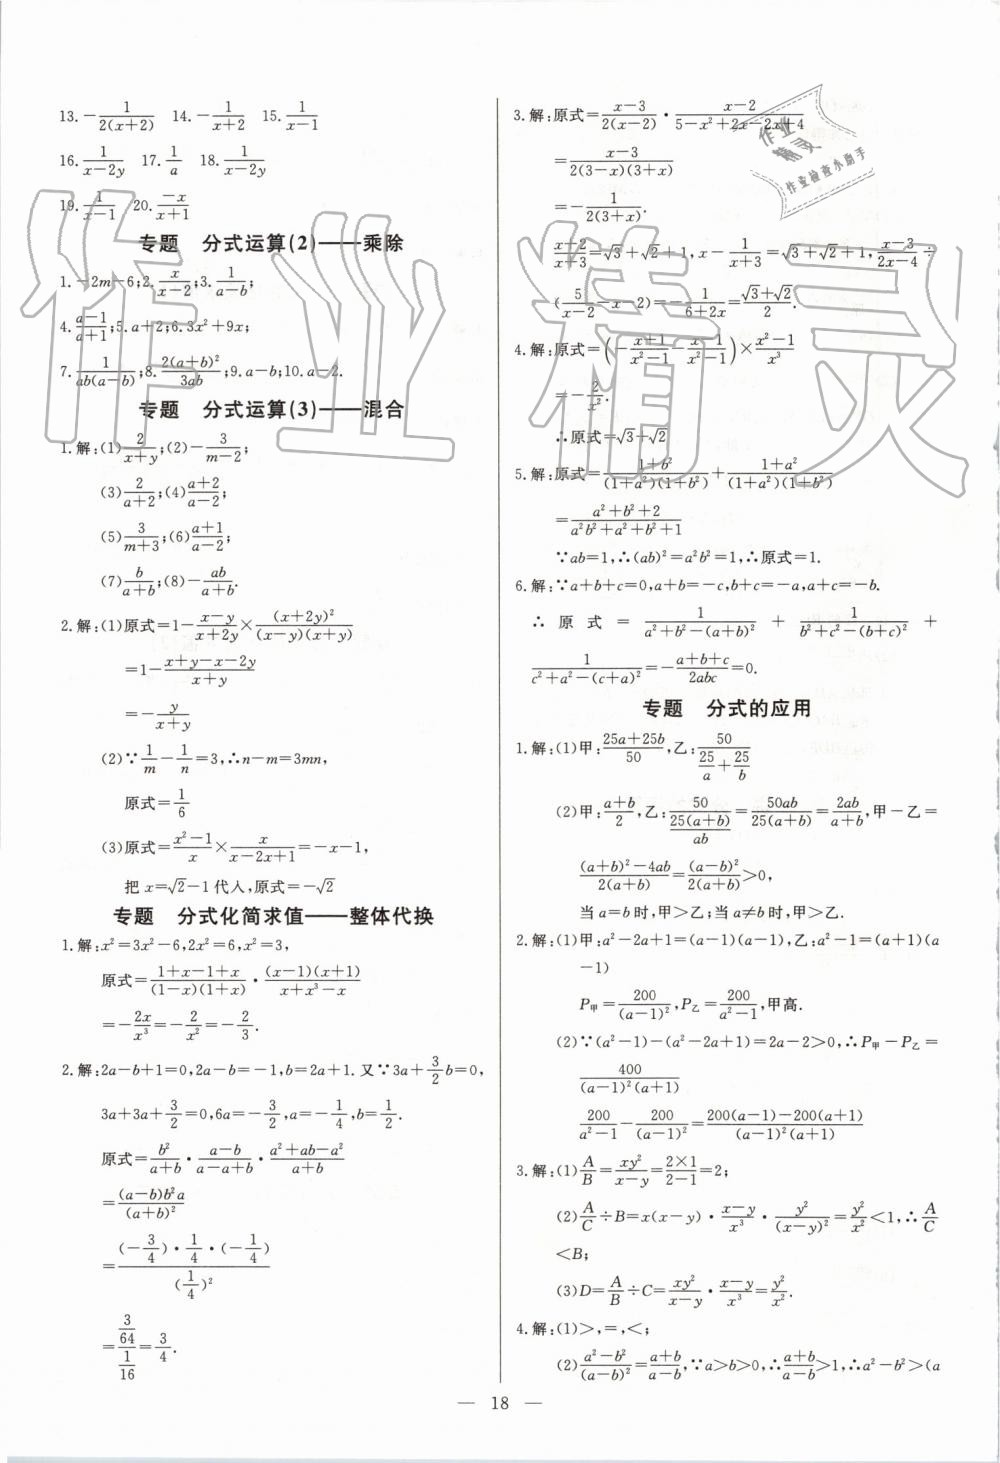 13. -1/(2(x+2)) 14. -1/(x+2) 15. 1/(x-1)
16. 1/(x-2y) 17. 1/a 18. 1/(x-2y)
19. 1/(x-1) 20. -x/(x+1)
专题 分式运算(2)——乘除
1. -2m-6;2. x/(x-2);3. 1/(a-b);
4. (a-1)/(a+1);5. a+2;6. 3x²+9x;
7. 1/(ab(a-b));8. 2(a+b)²/(3ab);9. a-b;10. a-2.
专题 分式运算(3)——混合
1. 解:(1) 2/(x+y);(2) -3/(m-2);
(3) 2/(a+2);(4) (a+2)/(a-2);
(5) 3/(m+3);(6) (a+1)/(a-2);
(7) b/(a+b);(8) -ab/(a+b).
2. 解:(1)原式=1-(x-y)/(x+2y)×(x+2y)²/((x-y)(x+y))
=1-(x+y-x-2y)/(x+y)
=-y/(x+y)
(2)∵1/m-1/n=3,∴n-m=3mn,
原式=1/6
(3)原式=(x²-1)/x×x/(x-2x+1)=-x-1,
把 x=√2-1代入,原式=-√2
专题 分式化简求值——整体代换
1. 解:x²=3x²-6,2x²=6,x²=3,
原式=(1+x-1+x)/((1-x)(1+x))·((x-1)(x+1))/(x+x³-x)
=-2x/x³=-2/x²=-2/3.
2. 解:2a-b+1=0,2a-b=-1,b=2a+1. 又∵3a+3/2b=0,
3a+3a+3/2=0,6a=-3/2,a=-1/4,b=1/2.
原式=b²/(a+b)·(a-b)/(a-a+b)·(a²+ab-a²)/(a+b)
=(a-b)b²a/(a+b)²
=((-3/4)·1/4·(-1/4))/(1/4)²
=(3/64)/(1/16)=3/4.
3. 解:原式=(x-3)/(2(x-2))·(x-2)/(5-x²+2x-2x+4)
=(x-3)/(2(3-x)(3+x))
=-1/(2(3+x)).
(x-2)/(x+3)=√3+√2+1,x-1/(x+3)=√3+√2+1,(x-3)/(2x-4)÷
(5/(x-2)-x-2)=-1/(6+2x)=(√3+√2)/2.
4. 解:原式=(-(x+1)/(x²-1)-(x-1)/(x²-1))×(x²-1)/x³
=-2/x².
∴原式=√3+√2
5. 解:原式=(1+b²)/((1+a²)(1+b²))+(1+a²)/((1+a²)(1+b²))
=(a²+b²+2)/(a²b²+a²+b²+1)
∵ab=1,∴(ab)²=a²b²=1,∴原式=1.
6. 解:∵a+b+c=0,a+b=-c,b+c=-a,a+c=-b.
∴原式=1/(a²+b²-(a+b)²)+1/(b²+c²-(b+c)²)+
1/(c²+a²-(c+a)²)=-(a+b+c)/(2abc)=0.
专题 分式的应用
1. 解:(1)甲:(25a+25b)/50,乙:50/(25/a+25/b)
(2)甲:(a+b)/2,乙:50/(25(a+b)/ab)=50ab/(25(a+b))=2ab/(a+b),甲-乙=
((a+b)²-4ab)/(2(a+b))=(a-b)²/(2(a+b))>0,
当 a=b 时,甲>乙;当 a≠b 时,甲>乙.
2. 解:(1)甲:a²-2a+1=(a-1)(a-1),乙:a²-1=(a+1)(a
-1)
P甲=200/(a-1)²,P乙=200/(a²-1),甲高.
(2)∵(a²-1)-(a²-2a+1)=2a-2>0,∴P甲-P乙=
400/((a-1)²(a+1))
200/(a²-1)-200/(a-1)²=(200(a-1)-200(a+1))/((a-1)²(a+1))
3. 解:(1)A/B=xy²/(x-y)=(2×1)/(2-1)=2;
(2)A/C÷B=x(x-y)·(x-y)/x³·y²/(x-y)²=y²/x²<1,∴A/C
<B;
(3)D=A/B÷C=xy²/(x-y)·(x-y)/x³=y²/x².
4. 解:(1)>,=,<;
(2)(a²-b²)/(a-b)²=(a+b)/(a-b),∵a>b>0,∴(a+b)/(a-b)>1,∴a²-b²>(a
— 18 —
作业精灵
作业
精灵
作业检查小助手